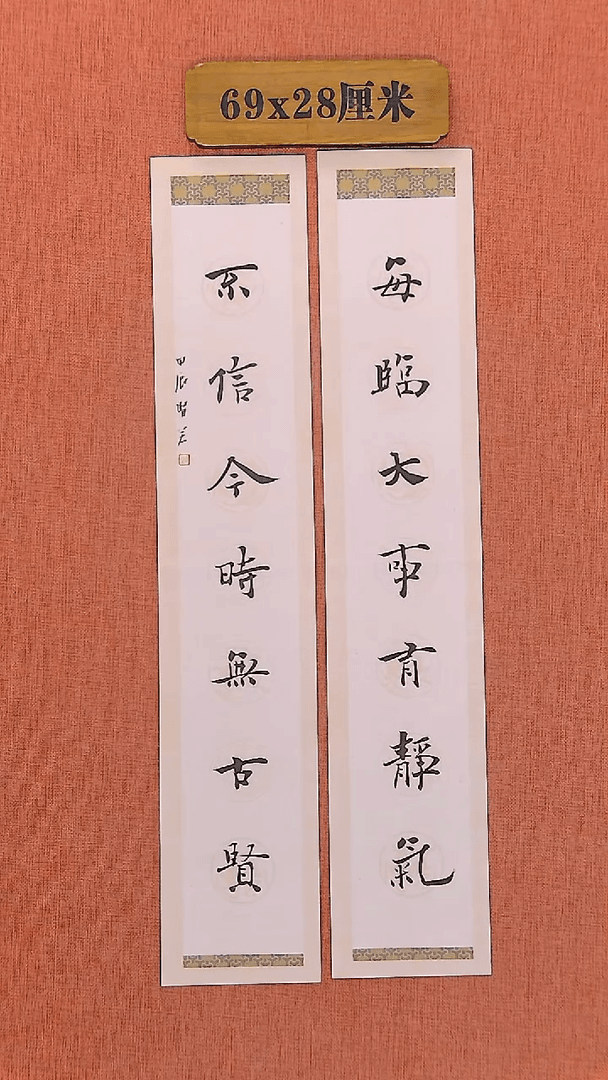 69x28厘米
每臨大事有靜氣
不信今時無古賢
甲辰